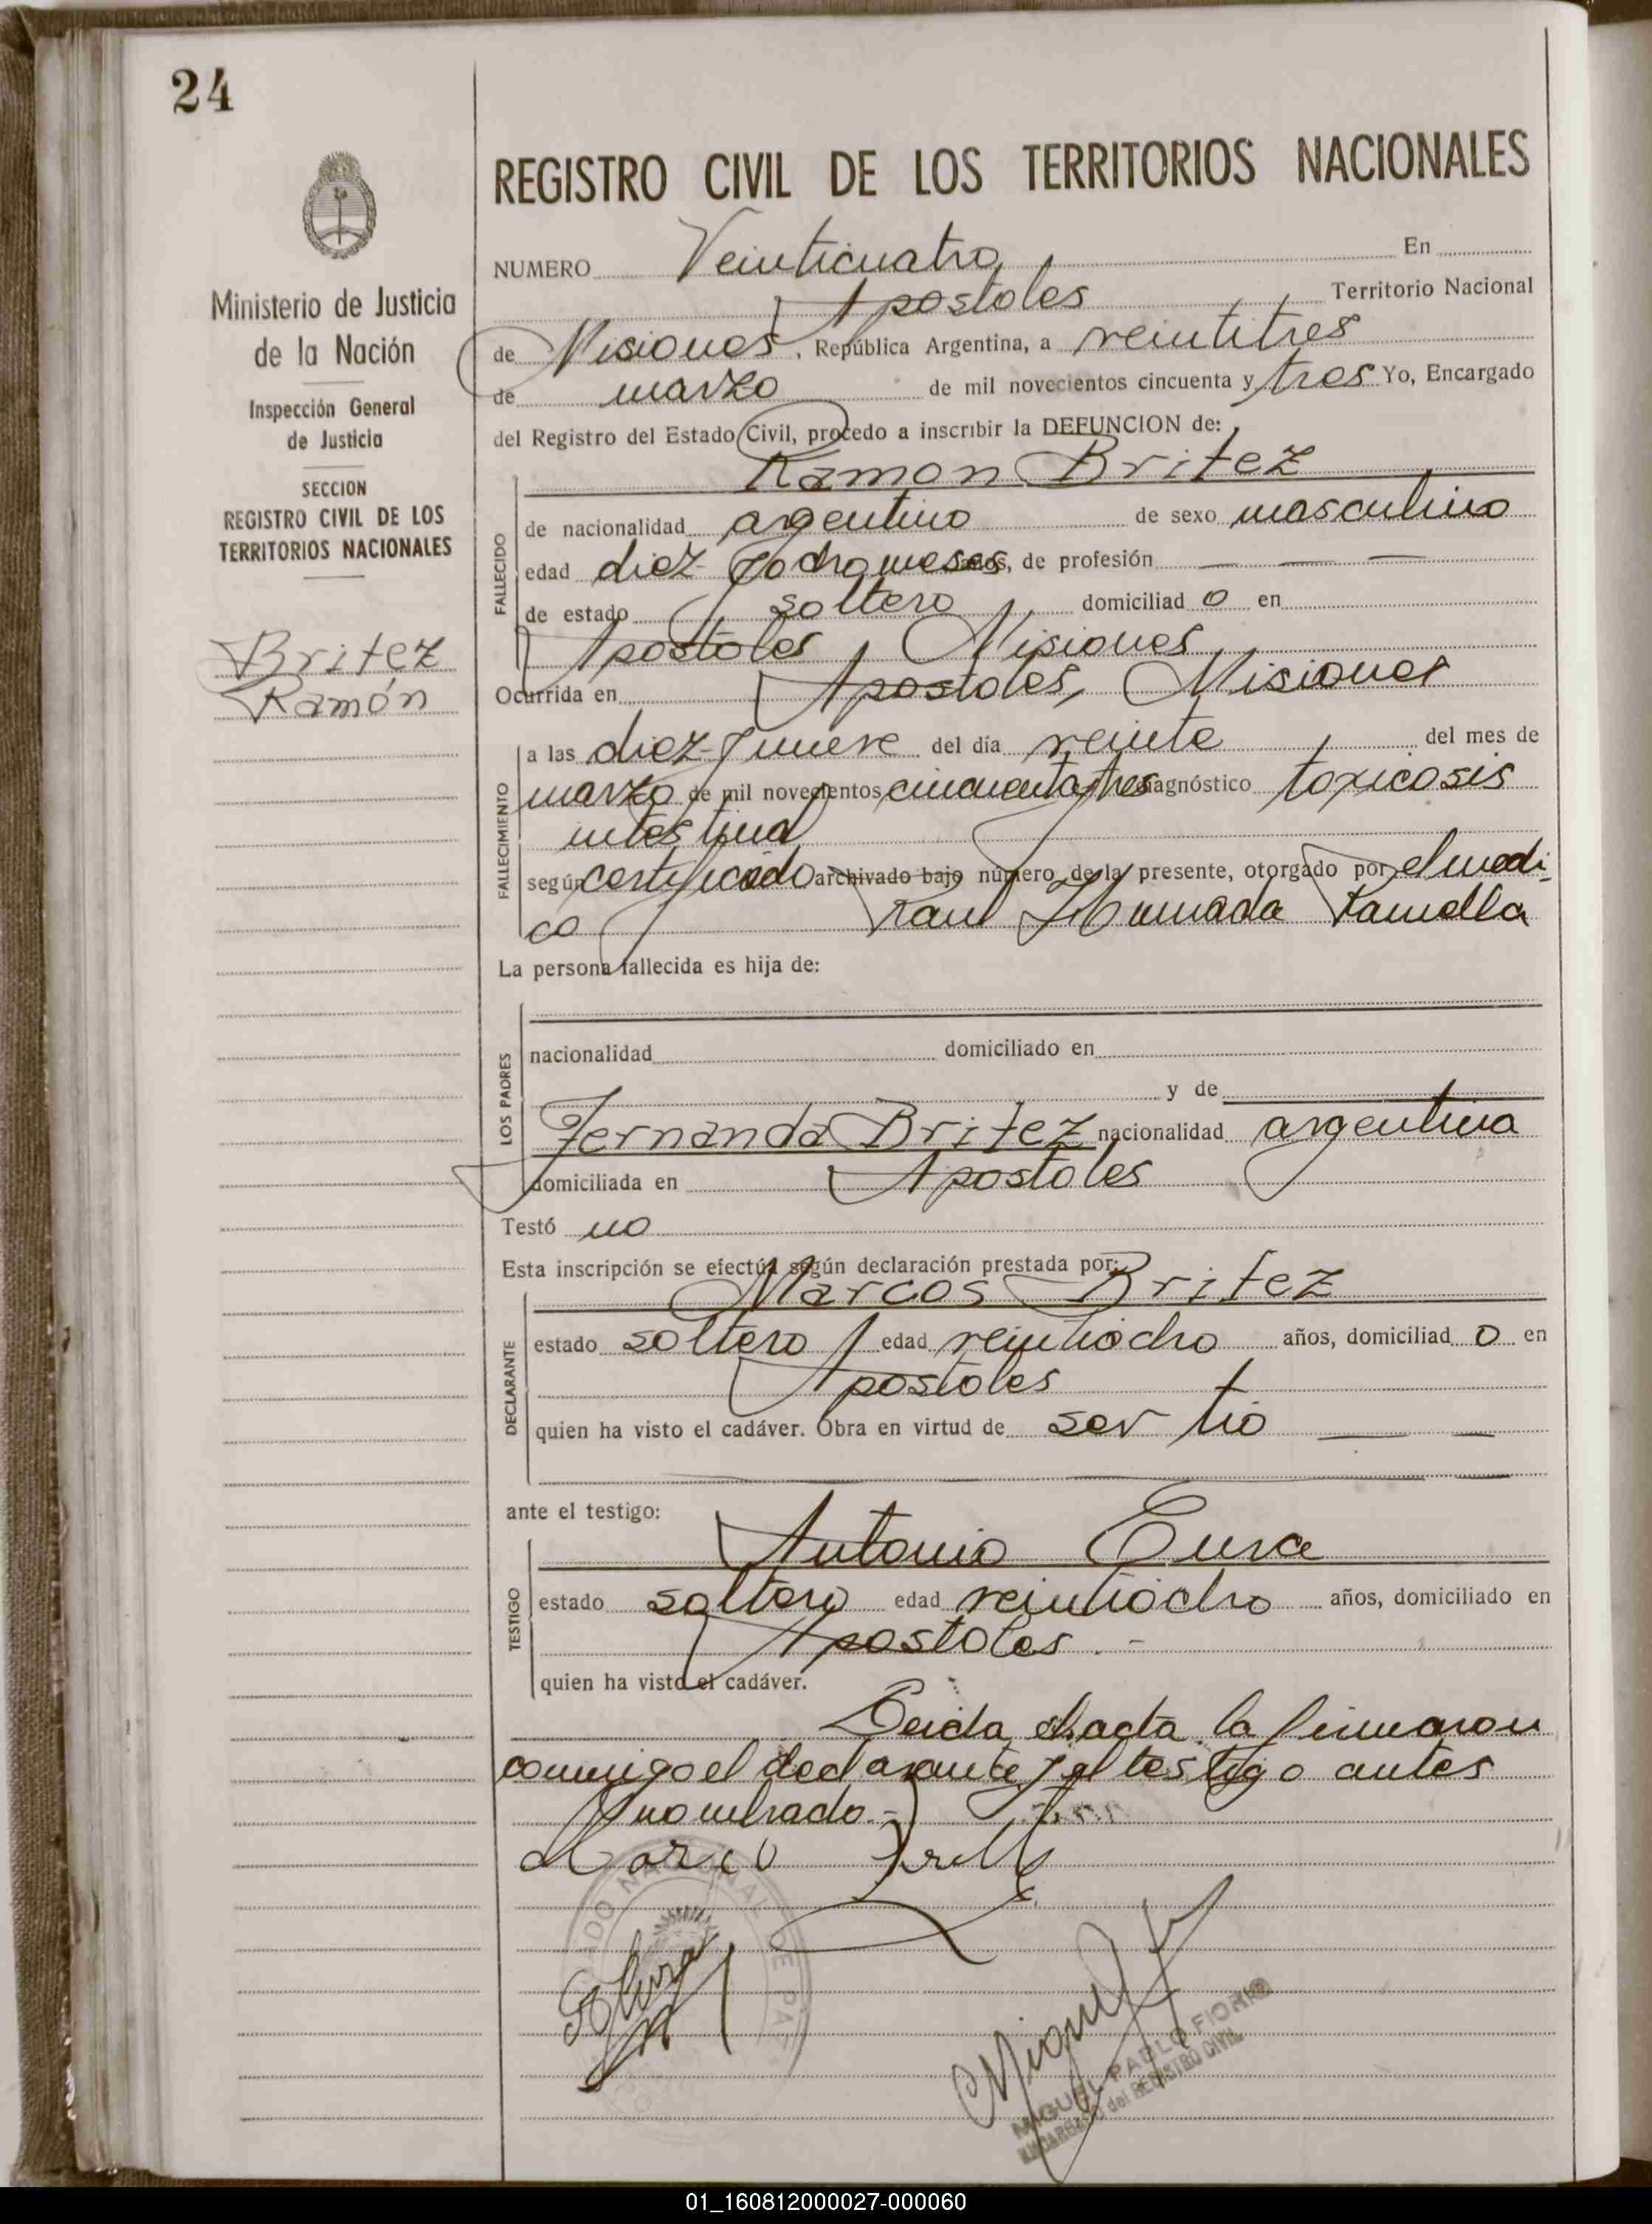 24
REGISTRO CIVIL DE LOS TERRITORIOS NACIONALES
Ministerio de Justicia
de la Nación
Inspección General
de Justicia
SECCION
REGISTRO CIVIL DE LOS
TERRITORIOS NACIONALES
Britez
Ramón
NUMERO Veinticuatro En
Apostoles Territorio Nacional
de Misiones, República Argentina, a veintitres
de marzo de mil novecientos cincuenta y tres Yo, Encargado
del Registro del Estado Civil, procedo a inscribir la DEFUNCION de:
Ramon Britez
FALLECIDO
de nacionalidad argentino de sexo masculino
edad diez y ocho meses años, de profesión
de estado soltero domiciliad o en
Apostoles, Misiones
Ocurrida en Apostoles, Misiones
FALLECIMIENTO
a las diez y nueve del día veinte del mes de
marzo de mil novecientos cincuenta y tres diagnóstico toxicosis
intestinal
según certificado archivado bajo número de la presente, otorgado por el medi-
co Raul Ramella
La persona fallecida es hija de:
LOS PADRES
nacionalidad domiciliado en
y de
Fernanda Britez nacionalidad argentina
domiciliada en Apostoles
Testó no
Esta inscripción se efectúa según declaración prestada por:
Marcos Britez
DECLARANTE
estado soltero edad veintiocho años, domiciliad o en
Apostoles
quien ha visto el cadáver. Obra en virtud de ser tio
ante el testigo:
Antonio
TESTIGO
estado soltero edad veintiocho años, domiciliado en
Apostoles.-
quien ha visto el cadáver.
Leida el acta la firmaron
conmigo el declarante y el testigo antes
nombrado.-
Miguel
MIGUEL PABLO FIORIO
ENCARGADO del REGISTRO CIVIL
01_160812000027-000060